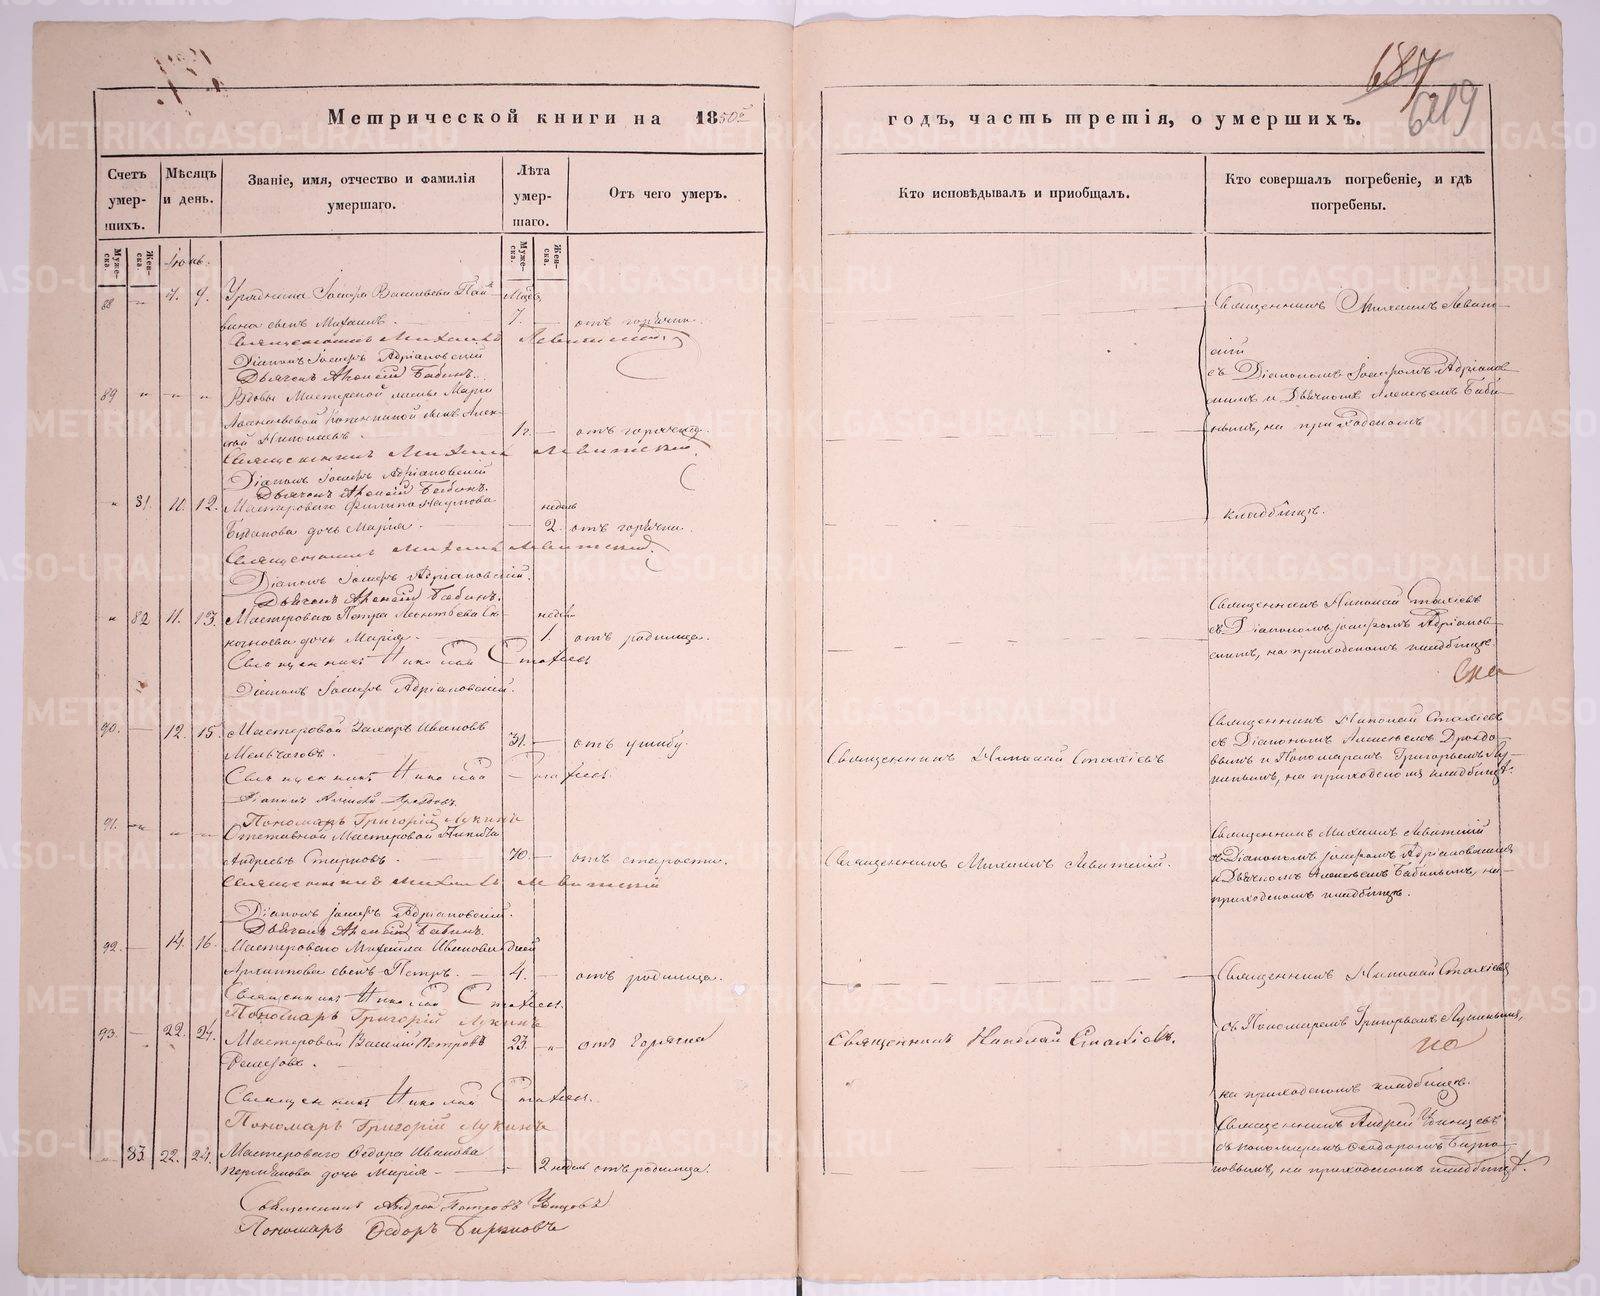 687
619
Метрической книги на 1850й
годъ, часть третія, о умершихъ.
Счетъ умер-
шихъ.
Мѣсяцъ
и день.
Званіе, имя, отчество и фамилія
умершаго.
Лѣта
умер-
шаго.
Отъ чего умеръ.
Кто исповѣдывалъ и приобщалъ.
Кто совершалъ погребеніе, и гдѣ
погребены.
Муже-
ска.
Жен-
ска.
Муже-
ска.
Жен-
ска.
Іюнь.
88 7. 9. Урядника Іосифа Васильева сынъ Михаилъ. Мѣсц. 7. отъ горячки.
Священникъ Михаилъ Левитскій.
Діаконъ Іосифъ Адріановскій
Дьячокъ Алексій Бабинъ.
Священникъ Михаилъ Левит-
скій
съ Діакономъ Іосифомъ Адріанов-
скимъ и Дьячкомъ Алексѣемъ Баби-
нымъ, на приходскомъ
кладбищѣ.
89 Вдовы Мастерской жены Маріи
сынъ Алек-
сѣй Николаевъ 1г. отъ горячки.
Священникъ Михаилъ Левитскій.
Діаконъ Іосифъ Адріановскій
Дьячокъ Алексій Бабинъ.
81. 10. 12. Мастероваго Филипа Наумова дочь Марія. недель 2. отъ горячки.
Священникъ Михаилъ Левитскій.
Діаконъ Іосифъ Адріановскій.
Дьячокъ Алексій Бабинъ.
82 11. 13. Мастероваго Петра Леонтьева дочь Марія. недели 1. отъ родимца.
Священникъ Николай Стахіевъ
Діаконъ Іосифъ Адріановскій.
Священникъ Николай Стахіевъ
съ Діакономъ Іосифомъ Адріанов-
скимъ, на приходскомъ кладбищѣ.
90. 12. 15. Мастеровой Захаръ Ивановъ 31. отъ ушибу.
Священникъ Николай Стахіевъ.
Діаконъ Алексій Дроздовъ.
Пономарь Григорій Лукинъ
Священникъ Николай Стахіевъ
Священникъ Николай Стахіевъ
съ Діакономъ Алексѣемъ Дроздо-
вымъ и Пономаремъ Григорьемъ Лу-
кинымъ, на приходскомъ кладбищѣ.
91. Отставной Мастеровой Никита
Андреевъ Старковъ. 70. отъ старости.
Священникъ Михаилъ Левитскій
Діаконъ Іосифъ Адріановскій.
Дьячокъ Алексій Бабинъ.
Священникъ Михаилъ Левитскій.
Священникъ Михаилъ Левитскій
съ Діакономъ Іосифомъ Адріановскимъ
и Дьячкомъ Алексѣемъ Бабинымъ, на
приходскомъ кладбищѣ.
92. 14. 16. Мастероваго Михаила Иванова дней
Архипова сынъ Петръ. 4. отъ родимца.
Священникъ Николай Стахіевъ.
Пономарь Григорій Лукинъ
Священникъ Николай Стахіевъ
съ Пономаремъ Григорьемъ Лукинымъ,
на приходскомъ кладбищѣ.
93. 22. 24. Мастеровой Василій Петровъ 23. отъ Горячки
Священникъ Николай Стахіевъ.
Священникъ Николай Стахіевъ.
Пономарь Григорій Лукинъ
83 22. 24. Мастероваго Ѳедора Иванова
дочь Марія 2 недель отъ родимца.
Священникъ Андрей
съ пономаремъ Ѳеодоромъ Бирю-
ковымъ, на приходскомъ кладбищѣ.
Священникъ Андрей Петровъ
Пономарь Ѳедоръ Бирюковъ
METRIKI.GASO-URAL.RU